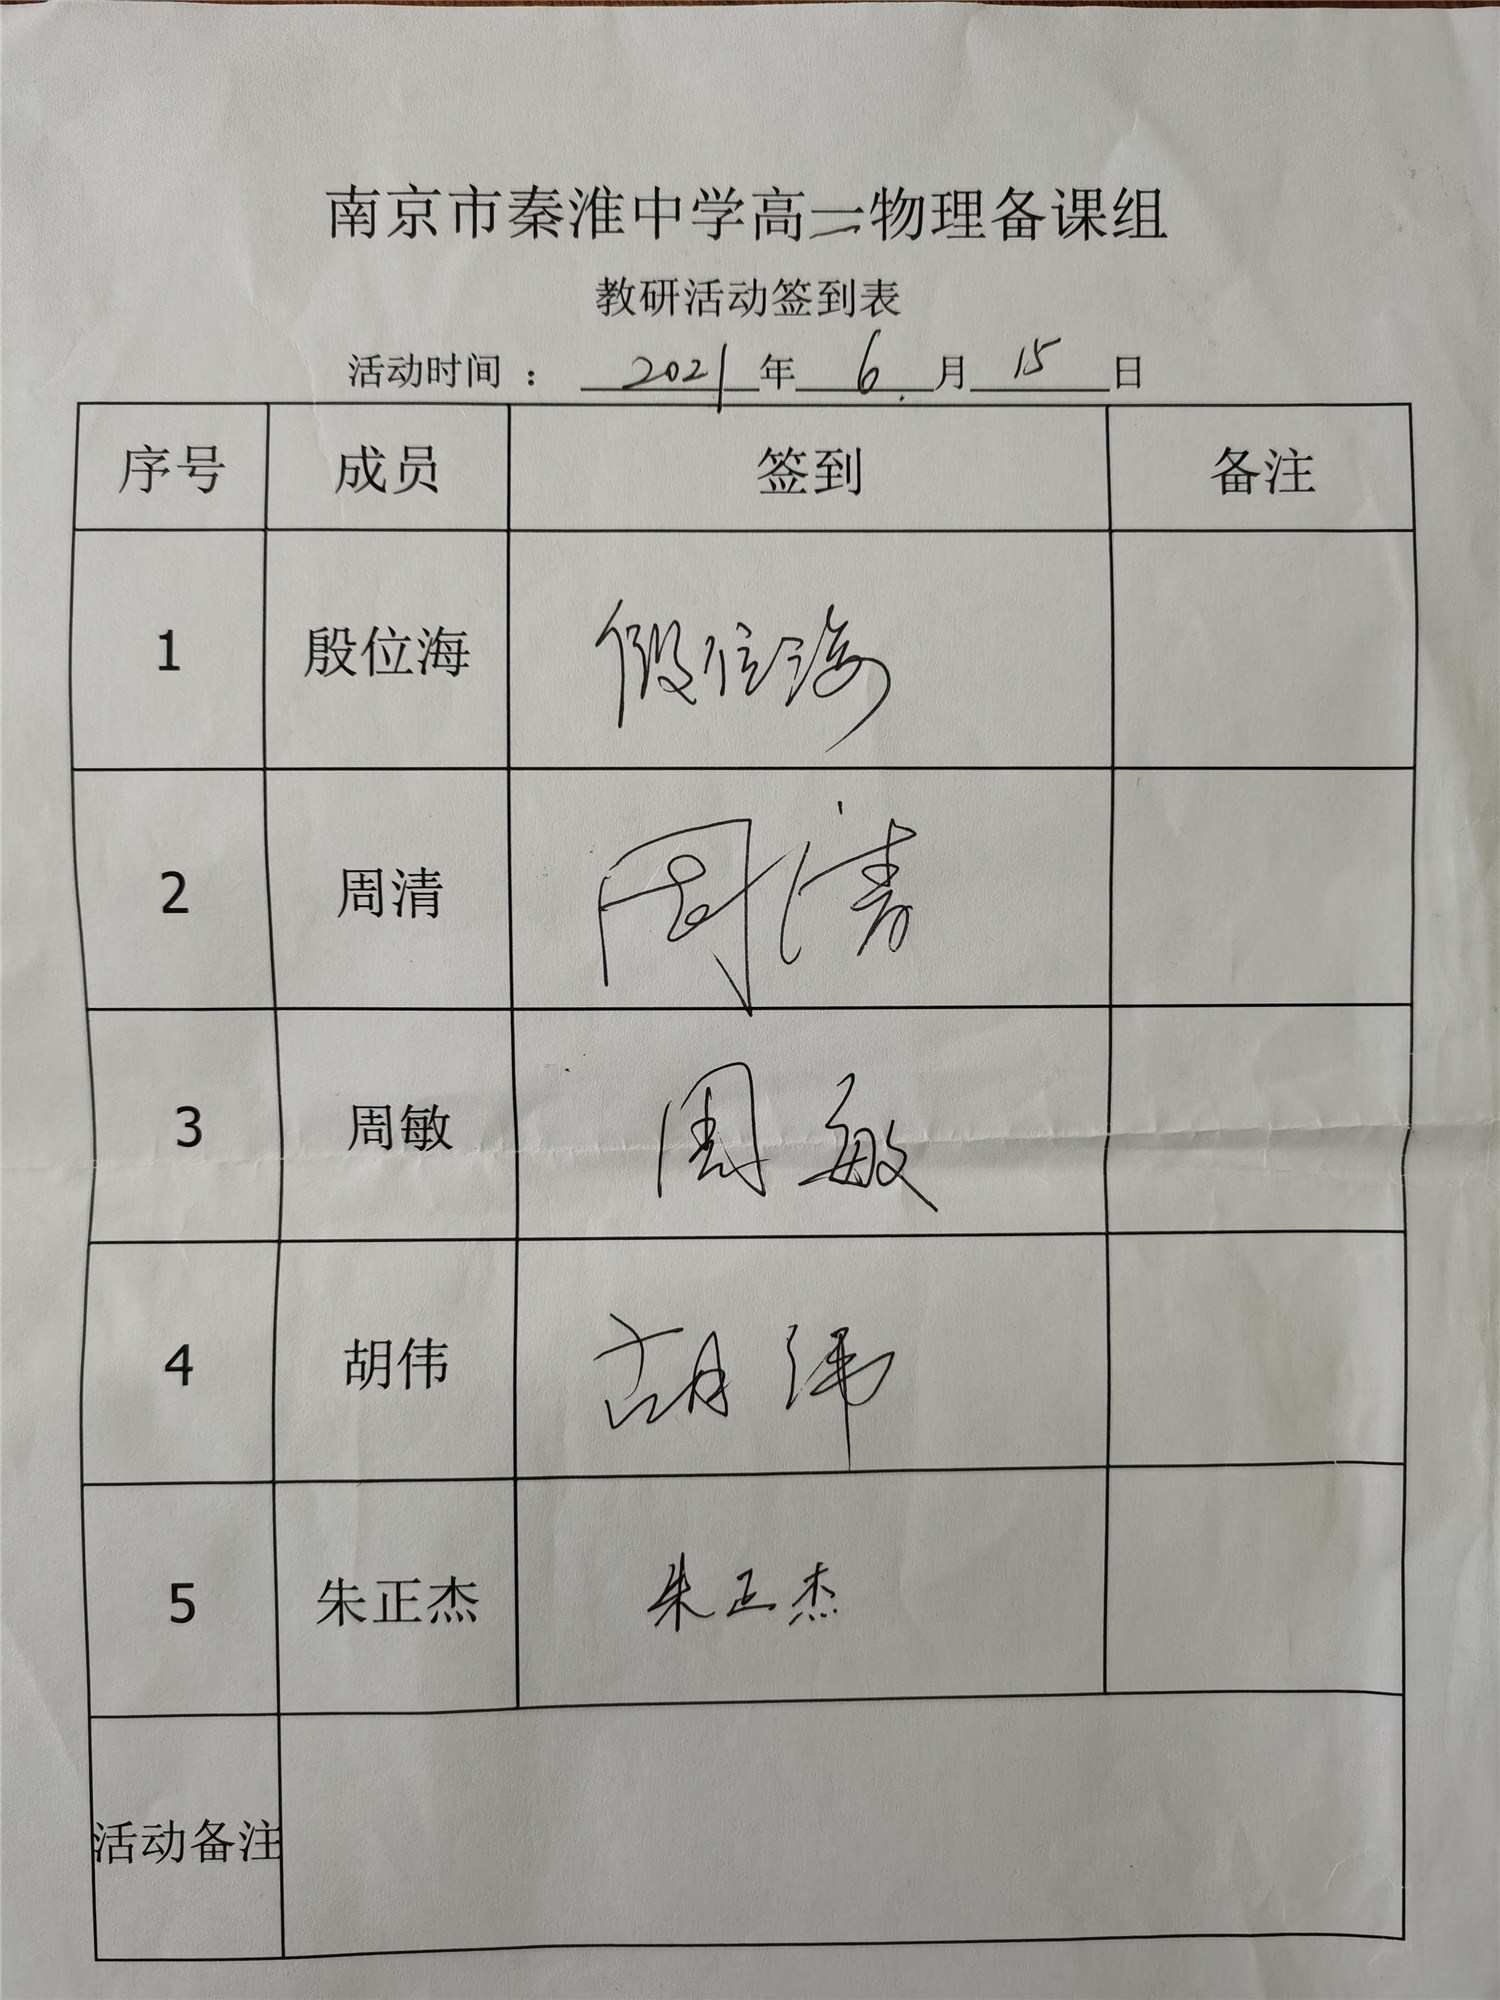 南京市秦淮中学高二物理备课组
教研活动签到表
活动时间： 2021年 6 月 15 日
序号 成员 签到 备注
1 殷位海 殷位海
2 周清 周清
3 周敏 周敏
4 胡伟 胡伟
5 朱正杰 朱正杰
活动备注